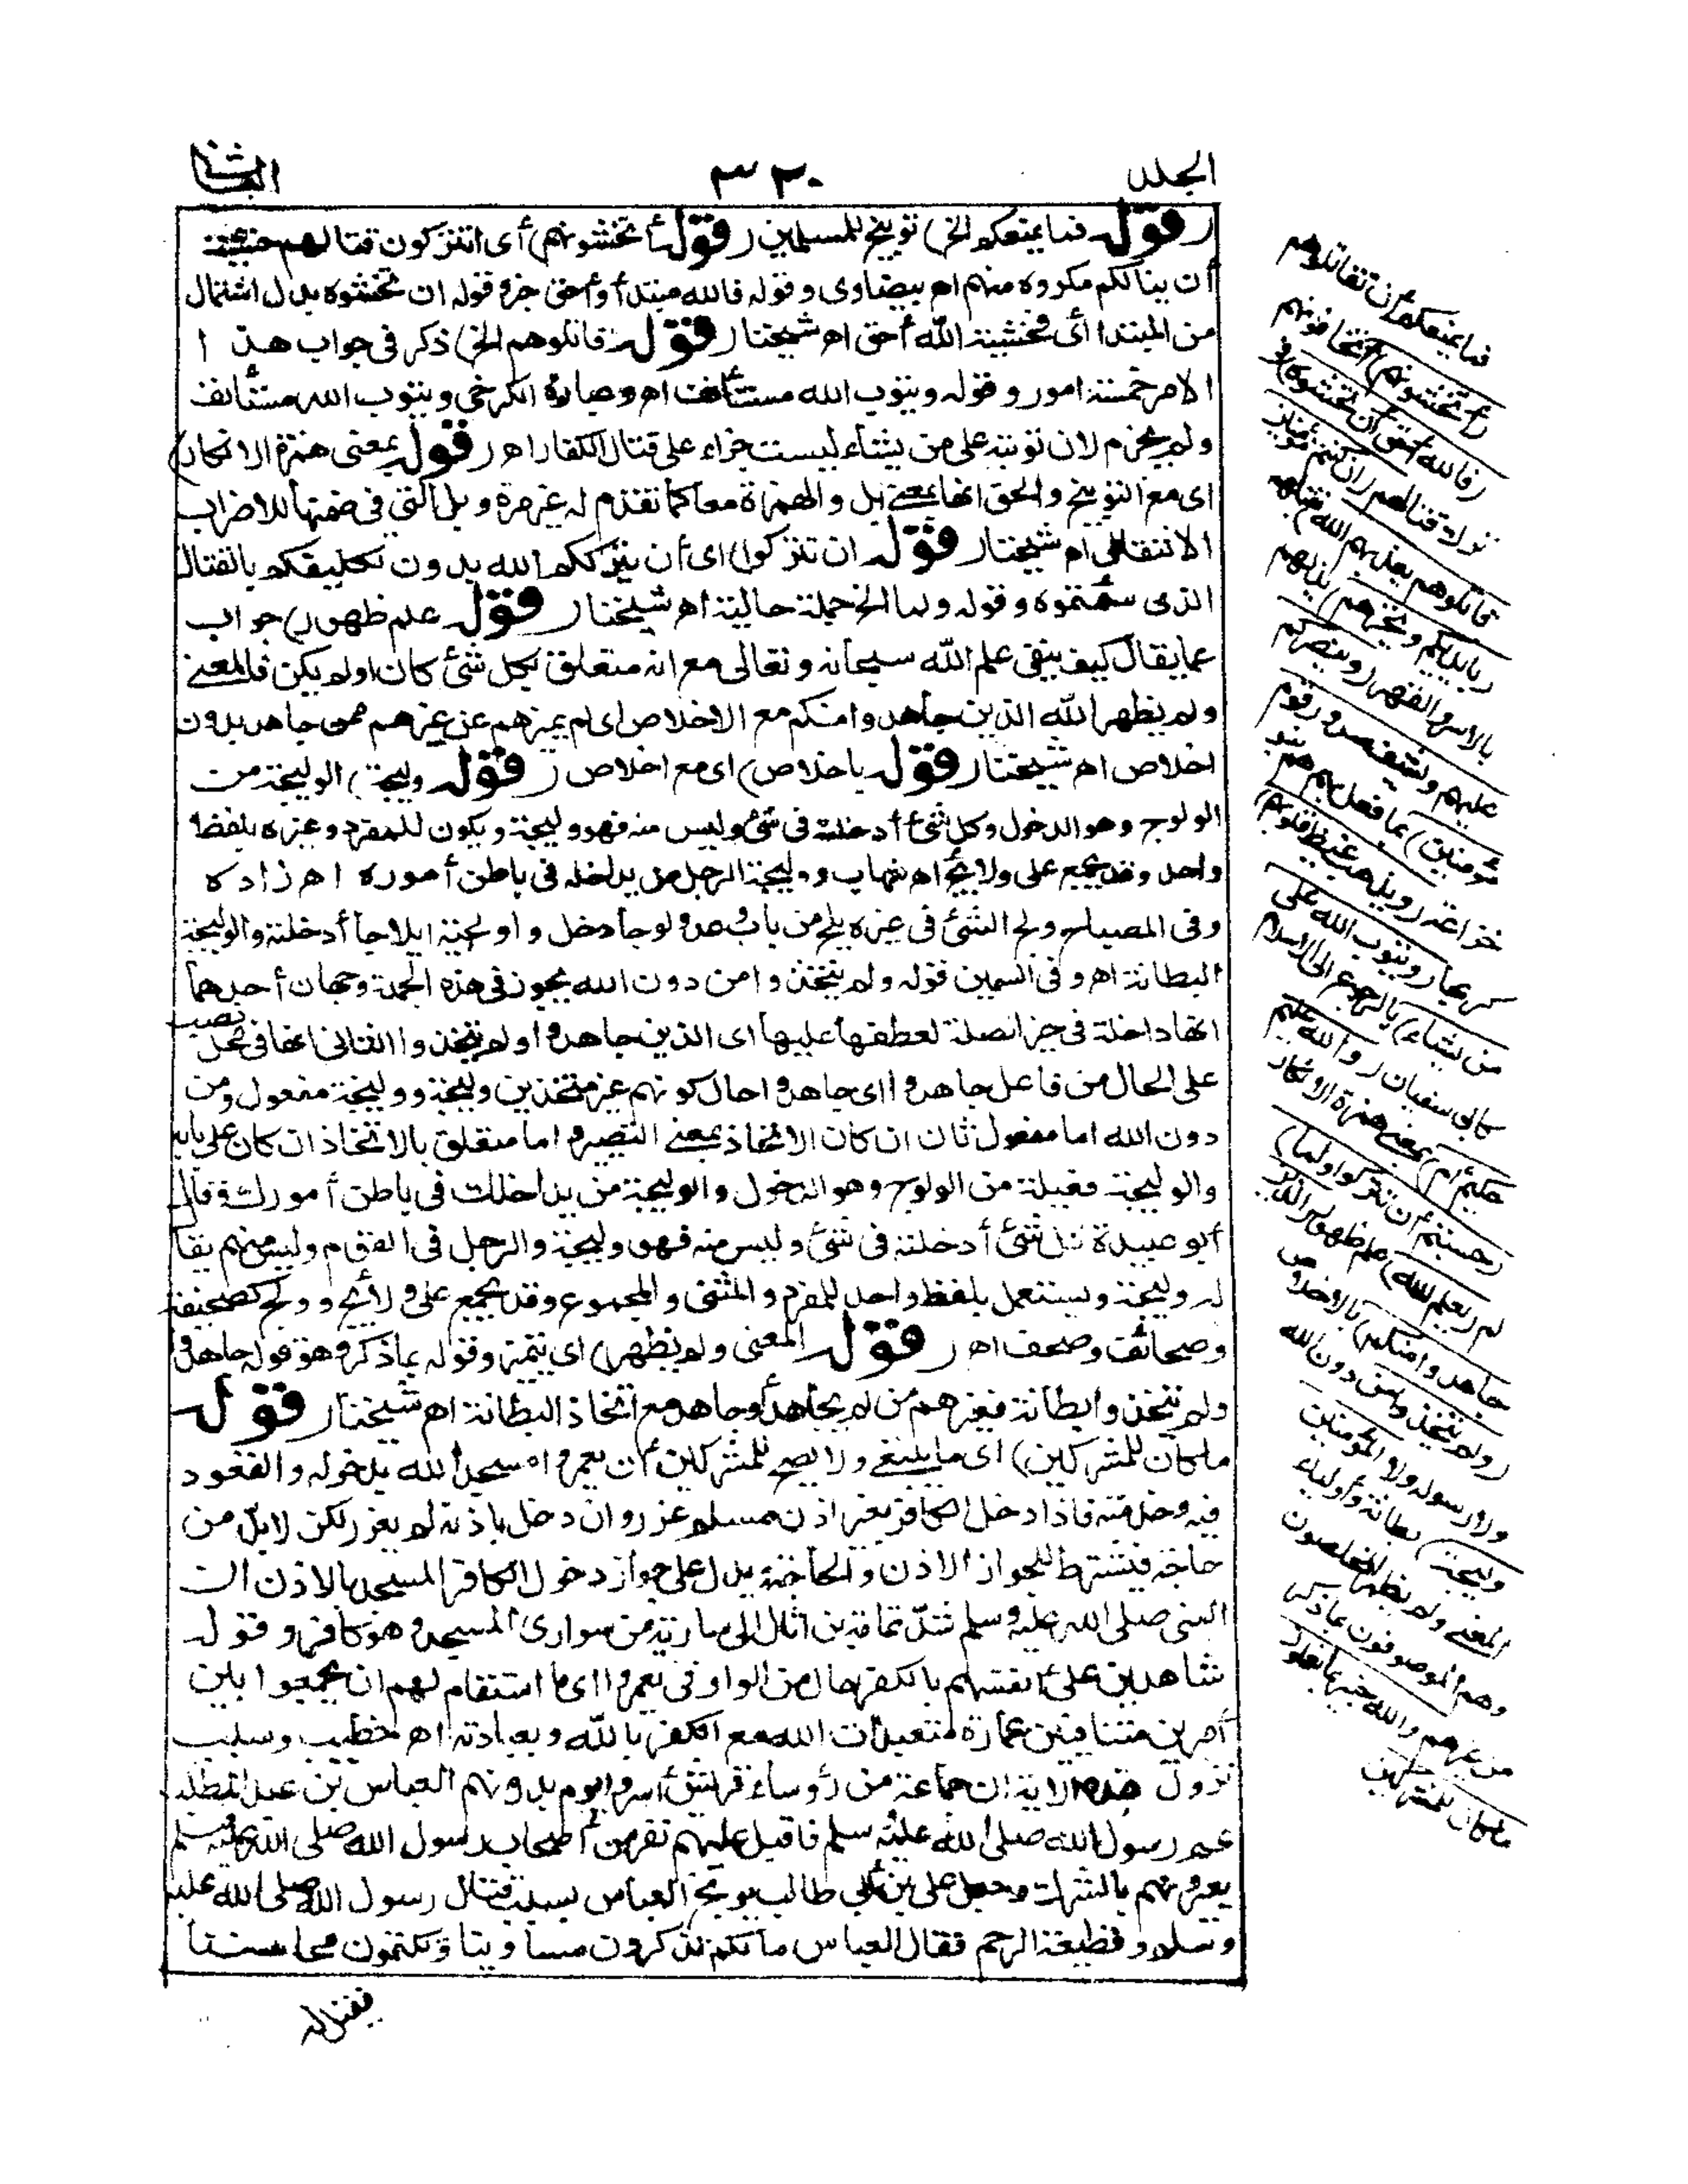 الجلد
٣٢٠
الثانى
(قوله فما يمنعكم الخ) توبيخ للمسلمين (قوله أتخشونهم) أى اتتركون قتالهم خشية
أن ينالكم مكروه منهم اھ بيضاوى وقوله فالله مبتدأ وأحق خبره وقوله ان تخشوه بدل اشتمال
من المبتدا أى فخشية الله أحق اھ شيخنا (قوله قاتلوهم الخ) ذكر فى جواب هذا
الامر خمسة امور وقوله ويتوب الله مستأنف اھ وعبارة الكرخى ويتوب الله مستأنف
ولم يجزم لان توبته على من يشاء ليست جزاء على قتال الكفار اھ (قوله بمعنى همزة الانكار)
اى مع التوبيخ والحق انها بمعنى بل والهمزة معا كما تقدم له غير مرة وبل التى فى ضمنها للاضراب
الانتقالى اھ شيخنا (قوله ان تتركوا) اى أن يترككم الله بدون تكليفكم بالقتال
الذى سئمتموه وقوله ولما الخ جملة حالية اھ شيخنا (قوله علم ظهور) جواب
عما يقال كيف ينفى علم الله سبحانه وتعالى مع انه متعلق بكل شئ كان اولم يكن فالمعنى
ولم يظهر الله الذين جاهدوا منكم مع الاخلاص اى لم يميزهم عن غيرهم ممن جاهد بدون
اخلاص اھ شيخنا (قوله باخلاص) اى مع اخلاص (قوله وليجة) الوليجة من
الولوج وهو الدخول وكل شئ أدخلته فى شئ وليس منه فهو وليجة ويكون للمفرد وغيره بلفظ
واحد وقد يجمع على ولائج اھ شهاب ووليجة الرجل من يداخله فى باطن أموره اھ زاده
وفى المصباح ولج الشئ فى غيره يلج من باب وعد ولوجا دخل واولجته ايلاجا أدخلته والوليجة
البطانة اھ وفى السمين قوله ولم يتخذوا من دون الله يجوز فى هذه الجملة وجهان أحدهما
انها داخلة فى حيز الصلة لعطفها عليها اى الذين جاهدوا ولم يتخذوا الثانى انها فى محل نصب
على الحال من فاعل جاهدوا اى جاهدوا حال كونهم غير متخذين وليجة ووليجة مفعول ومن
دون الله اما مفعول ثان ان كان الاتخاذ بمعنى التصيير واما متعلق بالاتخاذ ان كان على بابه
والوليجة فعيلة من الولوج وهو الدخول والوليجة من يداخلك فى باطن أمورك وقال
أبو عبيدة كل شئ أدخلته فى شئ وليس منه فهو وليجة والرجل فى القوم وليس منهم يقال
له وليجة ويستعمل بلفظ واحد للمفرد والمثنى والمجموع وقد يجمع على ولائج وولج كصحيفة
وصحائف وصحف اھ (قوله المعنى ولم يظهر) اى يتميز وقوله بماذكر وهو قوله جاهدوا
ولم يتخذوا بطانة فغيرهم من لم يجاهد أو جاهد مع اتخاذ البطانة اھ شيخنا (قوله
ما كان للمشركين) اى ما ينبغى ولا يصح للمشركين أن يعمروا مسجد الله بدخوله والقعود
فيه وخدمته فاذا دخل الكافر بغير اذن مسلم عزر وان دخل باذنه لم يعزر لكن لابد من
حاجة فيشترط للجواز الاذن والحاجة يدل على جواز دخول الكافر المسجد بالاذن ان
النبى صلى الله عليه وسلم شد ثمامة بن اثال الى سارية من سوارى المسجد وهو كافر وقوله
شاهدين على أنفسهم بالكفر حال من الواو فى يعمروا اى ما استقام لهم ان يجمعوا بين
أمرين متنافيين عمارة متعبدات الله مع الكفر بالله وبعبادته اھ خطيب وسبب
نزول هذه الاية ان جماعة من رؤساء قريش أسروا يوم بدر ومنهم العباس بن عبد المطلب
عم رسول الله صلى الله عليه وسلم فاقبل عليهم نفر من أصحاب رسول الله صلى الله عليه وسلم
يعيرونهم بالشرك وجعل على بن أبى طالب يوبخ العباس بسبب قتال رسول الله صلى الله عليه
وسلم وقطيعة الرحم فقال العباس مالكم تذكرون مساوينا وتكتمون محاسننا
فما يمنعكم أن تقاتلوهم
(أتخشونهم) أتخافونهم
(فالله أحق أن تخشوه) فى
ترك قتالهم (ان كنتم مؤمنين
قاتلوهم يعذبهم الله) يقتلهم
(بايديكم ويخزهم) يذلهم
بالاسر والقهر (وينصركم
عليهم ويشف صدور قوم
مؤمنين) بما فعل بهم هم بنو
خزاعة (ويذهب غيظ قلوبهم)
كربها (ويتوب الله على
من يشاء) بالرجوع الى الاسلام
كابى سفيان (والله عليم
حكيم أم) بمعنى همزة الانكار
(حسبتم أن تتركوا ولما)
لم (يعلم الله) علم ظهور (الذين
جاهدوا منكم) بالاخلاص
(ولم يتخذوا من دون الله
ولا رسوله ولا المؤمنين
وليجة) بطانة وأولياء
المعنى ولم يظهر المخلصون
وهم الموصوفون بماذكر
من غيرهم (والله خبير بما تعملون
ما كان للمشركين